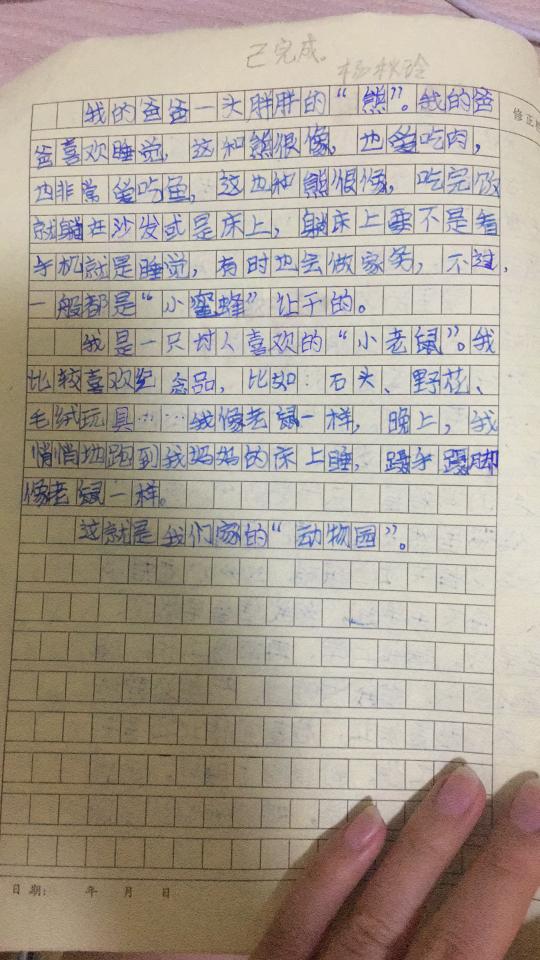 已完成。 杨秋玲
修正
我的爸爸一头胖胖的“熊”。我的爸
爸喜欢睡觉，这和熊很像，也爱吃肉，
也非常爱吃鱼，这也和熊很像，吃完饭
就躺在沙发或是床上，躺床上要不是看
手机就是睡觉，有时也会做家务，不过，
一般都是“小蜜蜂”让干的。
我是一只讨人喜欢的“小老鼠”。我
比较喜欢纪念品，比如：石头、野花、
毛绒玩具……我像老鼠一样，晚上，我
悄悄地跑到我妈妈的床上睡，蹑手蹑脚
像老鼠一样。
这就是我们家的“动物园”。
日期： 年 月 日